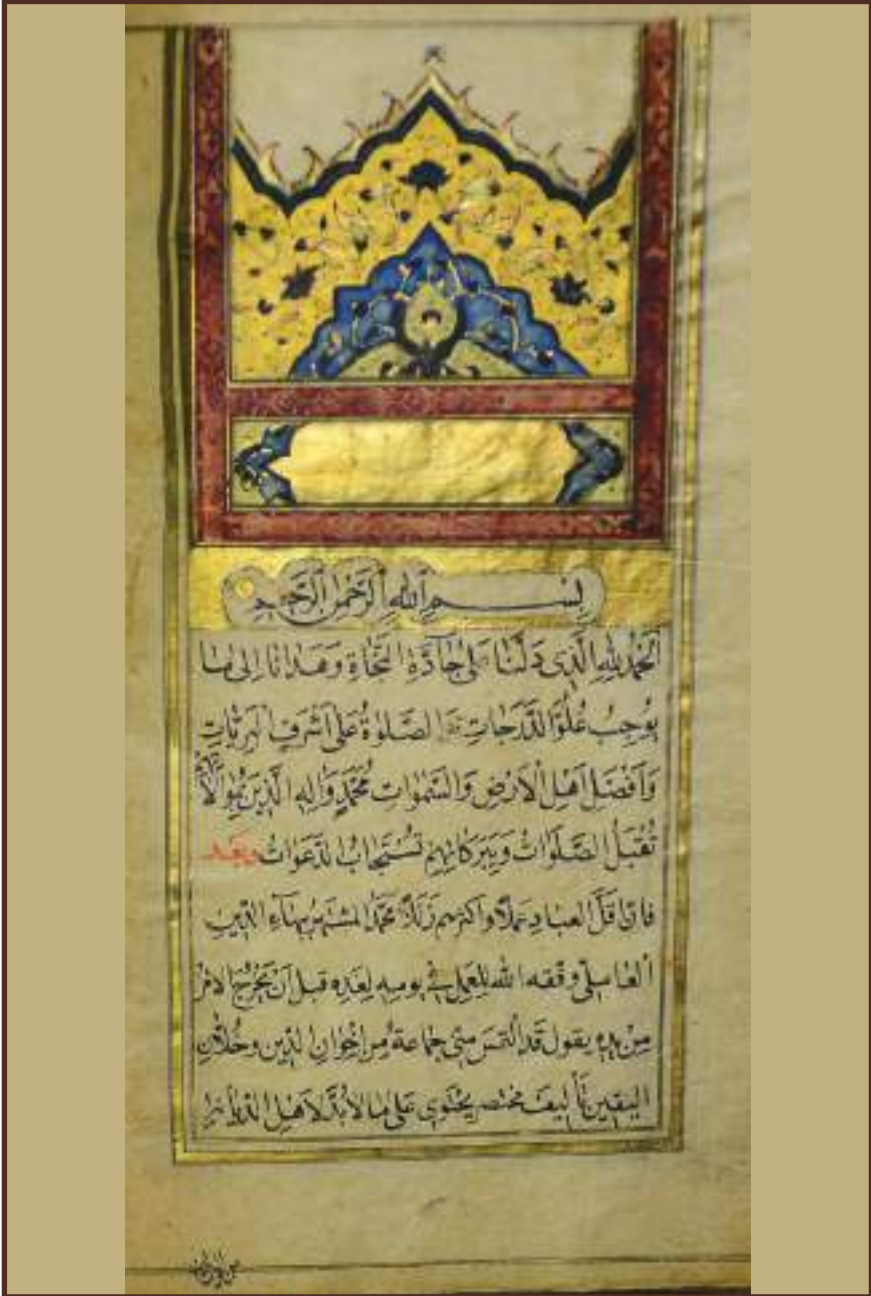 بِسْمِ ٱللّٰهِ ٱلرَّحْمٰنِ ٱلرَّحِيمِ
اَلْحَمْدُ لِلّٰهِ الَّذِی دَلَّنَا عَلٰی جَآدَّةِ النَّجَاةِ وَهَدَانَا اِلٰی مَا
یُوجِبُ عُلُوَّ الدَّرَجَاتِ وَ الصَّلٰوةُ عَلٰی اَشْرَفِ الْبَرِیَّاتِ
وَاَفْضَلِ اَهْلِ الْاَرْضِ وَالسَّمٰوَاتِ مُحَمَّدٍ وَالِهِ الَّذِینَ بِمُوَالَاتِهِمْ
تُقْبَلُ الصَّلَوَاتُ وَبِبَرَكَاتِهِمْ تُسْتَجَابُ الدَّعَوَاتُ وبعد
فان اقلّ العباد عملا واکثرهم زللا محمّد المشتهر ببهاء الدین
العاملی وفقه الله للعمل فی یومه لغده قبل ان یخرج الامر
من یده یقول قد التمس منّی جماعة من اخوان الدین وخلّان
الیقین تألیف مختصر یحتوی علی ما لابدّ لاهل